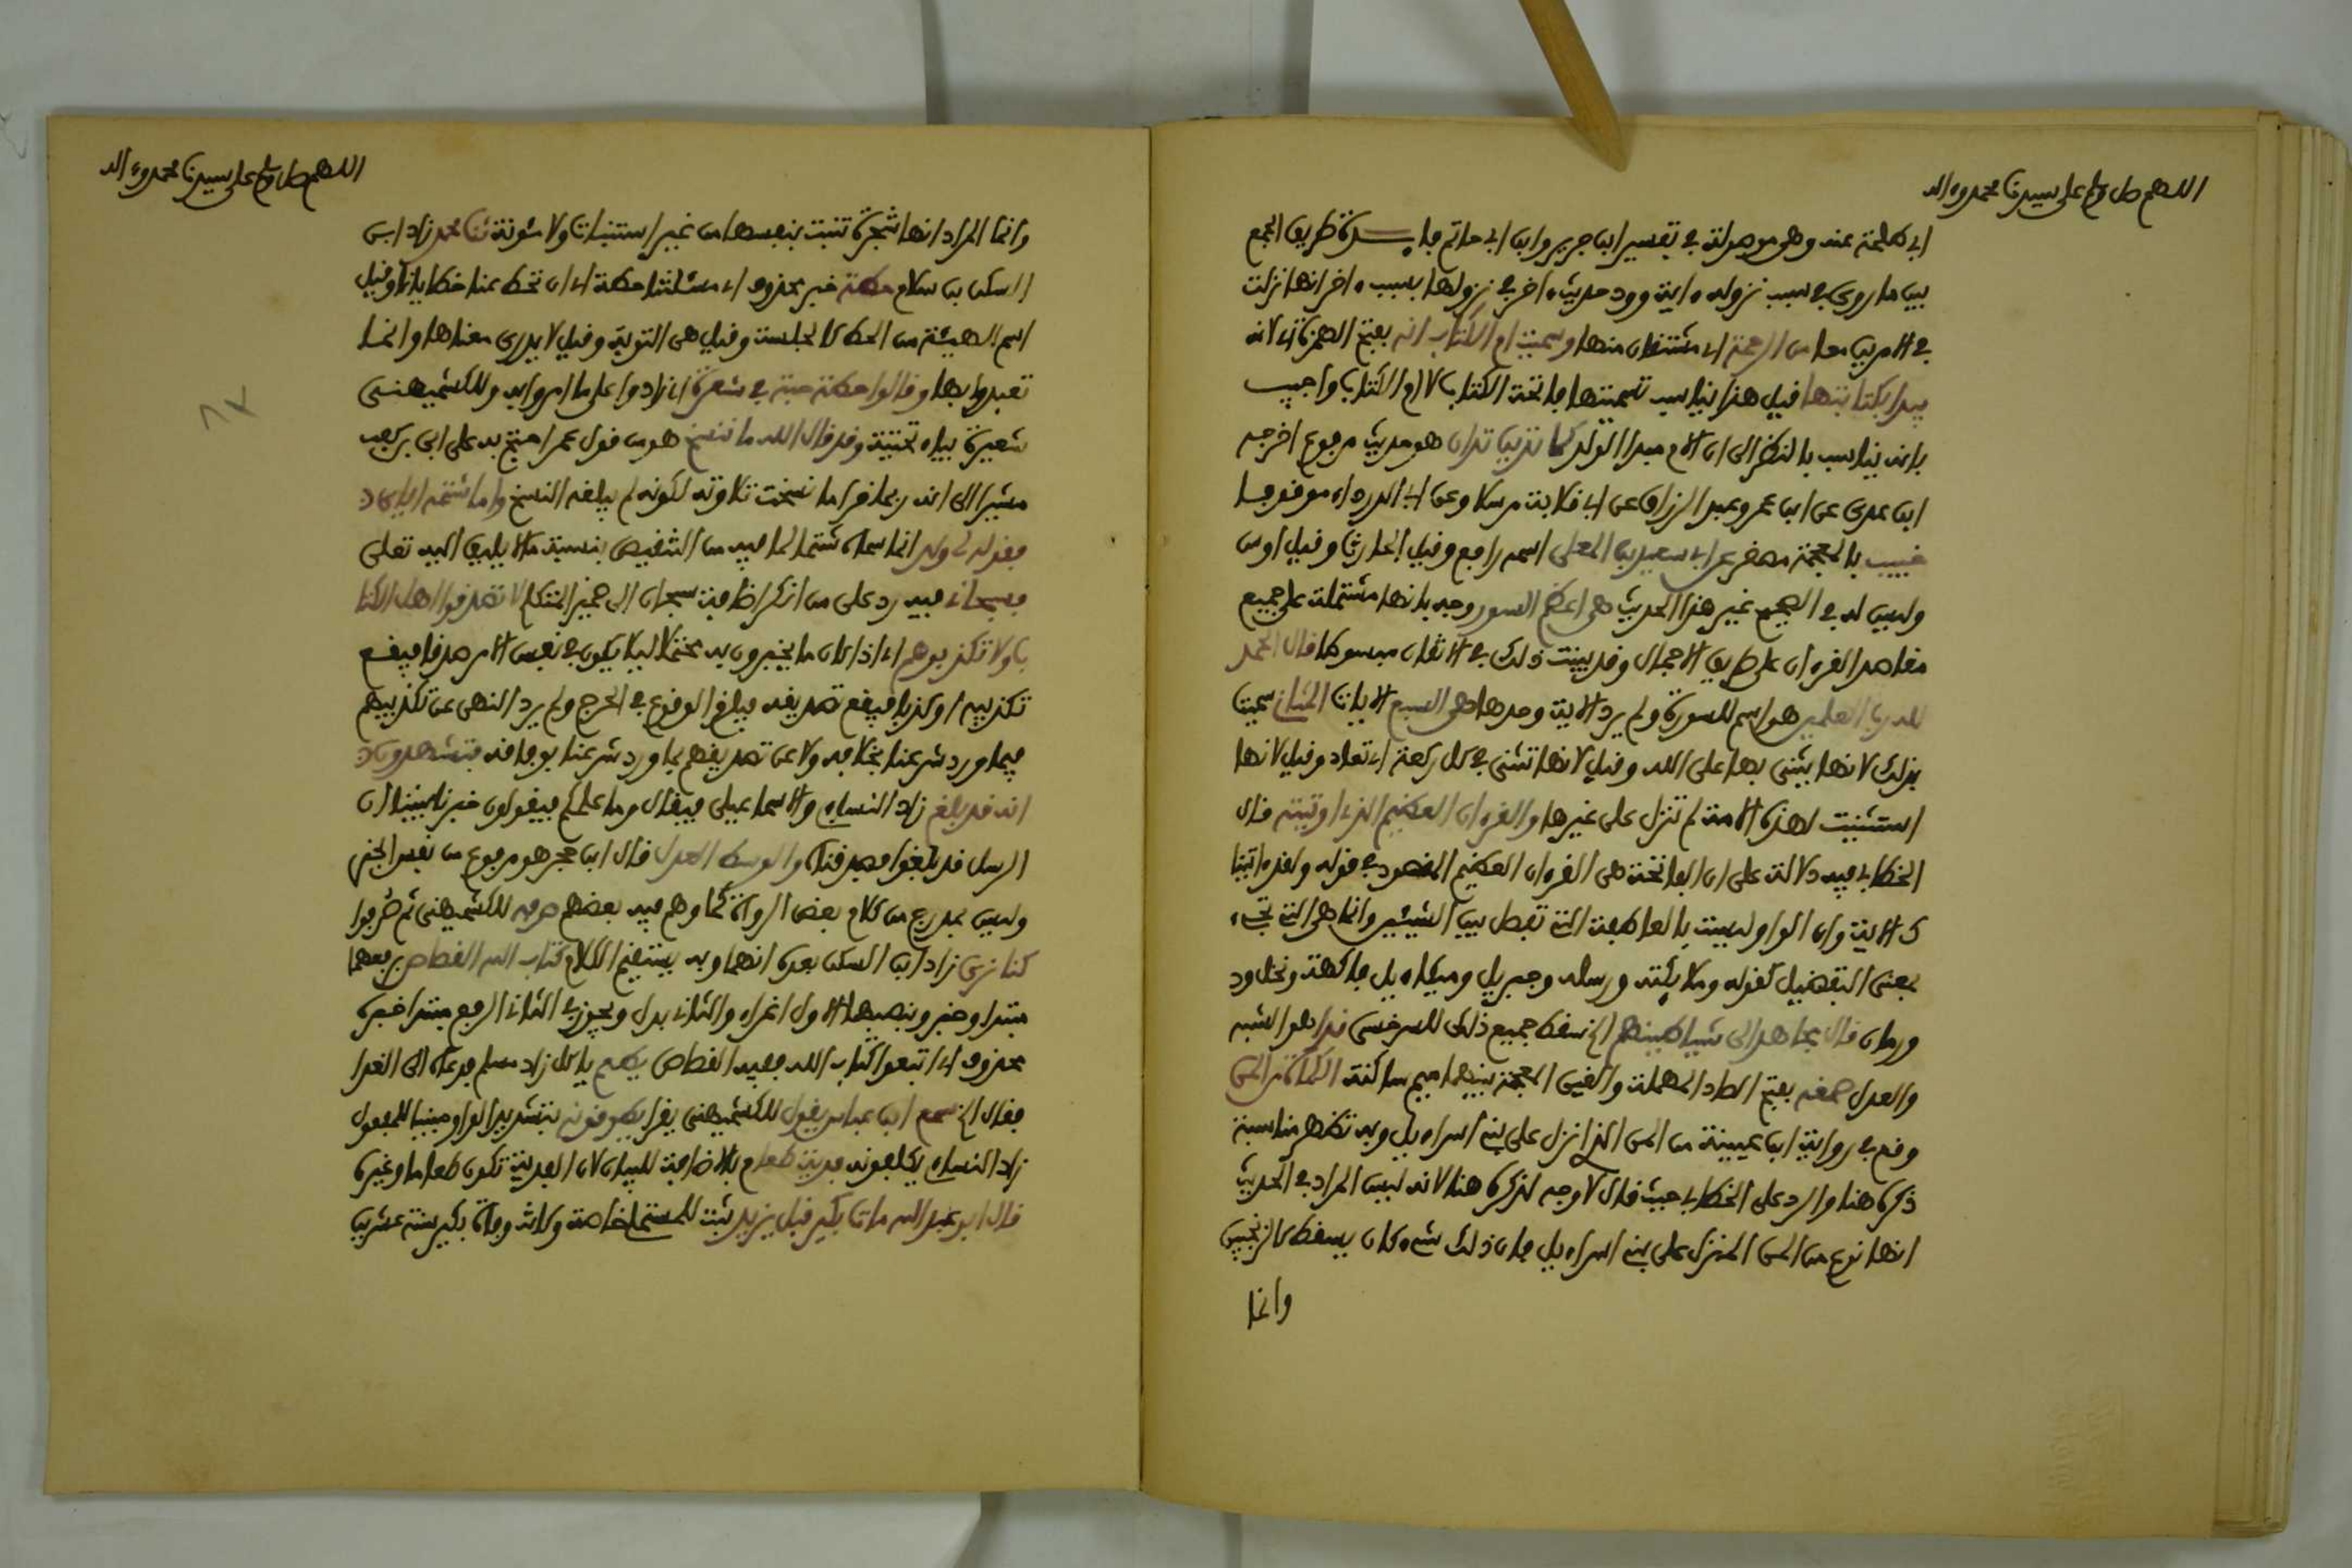 اللهم صل وسلم على سيدنا محمد وءاله
ابي طلحة عنه وهو موصولة في تفسير ابن جرير وابن ابي حاتم فايدة طريق الجمع
بين ما روي في سبب نزوله ءاية وورد حديث ءاخر في نزولها بسبب ءاخر انها نزلت
في الامرين معا من الرحمة اي مشتقان منها وسميت ام الكتاب انه بفتح الهمزة اي لانه
يبدا بكتابتها قيل هذا يناسب تسميتها فاتحة الكتاب لا ام الكتاب واجيب
بانه يناسب بالنظر الى ان الام مبدا الولد كما تدين تدان هو حديث مرفوع اخرجه
ابن عدي عن ابن عمر وعبد الرزاق عن ابي قلابة مرسلا وعن ابي الدرداء موقوفا
خبيب بالمعجمة مصغر عن ابي سعيد بن المعلى اسمه رافع وقيل الحارث وقيل اوس
وليس له في الصحيح غير هذا الحديث هي اعظم السور وجه بانها مشتملة على جميع
مقاصد القرءان على طريق الاجمال وقد بينت ذلك في الاتقان مبسوطا قال الحمد
لله رب العلمين هو اسم للسورة ولم يرد الاية وحدها هي السبع الايات المثاني سميت
بذلك لانها يثنى بها على الله وقيل لانها تثنى في كل ركعة اي تعاد وقيل لانها
استثنيت لهذه الامة لم تنزل على غيرها والقرءان العظيم الذي اوتيته قال
الخطابي فيه دلالة على ان الفاتحة هي القرءان العظيم المقصود في قوله ولقد ءاتينا
ك الاية وان الواو ليست بالعاطفة التي تفصل بين الشيئين وانما هي التي تجيء
بمعنى التفضيل كقوله وملايكته ورسله وجبريل وميكاءيل فاكهة ونخل ود
ورمان قال مجاهد الى شياطينهم الخ سقط جميع ذلك للسرخسي فدا هوا لشبه
والعدل صمغه بفتح الصاد المهملة والغين المعجمة بينهما ميم ساكنة الكماة من المن
وقع في رواية ابن عيينة من المن الذي انزل على بني اسراءيل وبه تظهر مناسبة
ذكره هنا والرد على الخطابي حيث قال لا وجه لذكره هنا لانه ليس المراد في الحديث
انها نوع من المن المنزل على بني اسراءيل فان ذلك شيء كان يسقط كالترنجبين
وانما
اللهم صل وسلم على سيدنا محمد وءاله
وانما المراد انها شجرة تنبت بنفسها من غير استنبات ولا مئونة ثنا محمد زاد ابن
السكن بن سلام حطة خبر محذوف اي مسئلتنا حطة اي ان تحط عنا خطايانا وقيل
اسم للهيئة من الحط كالجلسة وقيل هي التوبة وقيل لا يدرى معناها وانما
تعبدوا بها وقالوا حطة حبة في شعرة اي زادوا على ما امروا به وللكشميهني
شعيرة بياء تحتية وقد قال الله ما ننسخ هو من قول عمر احتج به على ابي بن كعب
مشيرا الى انه ربما قرا ما نسخت تلاوته لكونه لم يبلغه النسخ واما شتمه اياي د
فقوله لي ولد انما سماه شتما لما فيه من التنقيص بنسبة ما لا يليق اليه تعلى
فسبحاني فيه رد على من انكر اضافة سبحان الى ضمير المتكلم لا تصدقوا اهل الكتا
ب ولا تكذبوهم اي اذا كان ما يخبرون به محتملا ليلا يكون في نفس الامر صدقا فيقع
تكذيبه او كذبا فيقع تصديقه فيلزم الوقوع في الحرج ولم يرد النهي عن تكذيبهم
فيما ورد شرعنا بخلافه ولا عن تصديقهم بما ورد شرعنا بوفاقه فتشهدون د
انه قد بلغ زاد النساءي والاسماعيلي فيقال وما علمكم فيقولون خبر نا نبينا ان
الرسل قد بلغوا فصدقناه والوسط العدل قال ابن حجر هو مرفوع من نفس الخبر
وليس بمدرج من كلام بعض الرواة كما وهم فيه بعضهم صرفه للكشميهني ثم ضربوا
كنا نرى زاد ابن السكن بعده انهما وبه يستقيم الكلام كتاب الله القصاص برفعهما
مبتدا وخبر وبنصبهما الاول اغراء والثاني بدل ويجوز في الثاني الرفع مبتدا خبره
محذوف اي اتبعوا كتاب الله ففيه القصاص يطعم يا كل زاد مسلم فدعاه الى الغدا
فقال الخ سمع ابن عباس يقول للكشميهني يقرا يطوقونه بتشديد الواو مبنيا للمفعول
زاد النساءي يكلفونه فدية طعام بالاضافة للبيان لان الفدية تكون طعاما وغيره
قال ابو عبد الله مات بكير قبل يزيد ثبت للمستملي خاصة وكانت وفاة بكير سنة عشرين